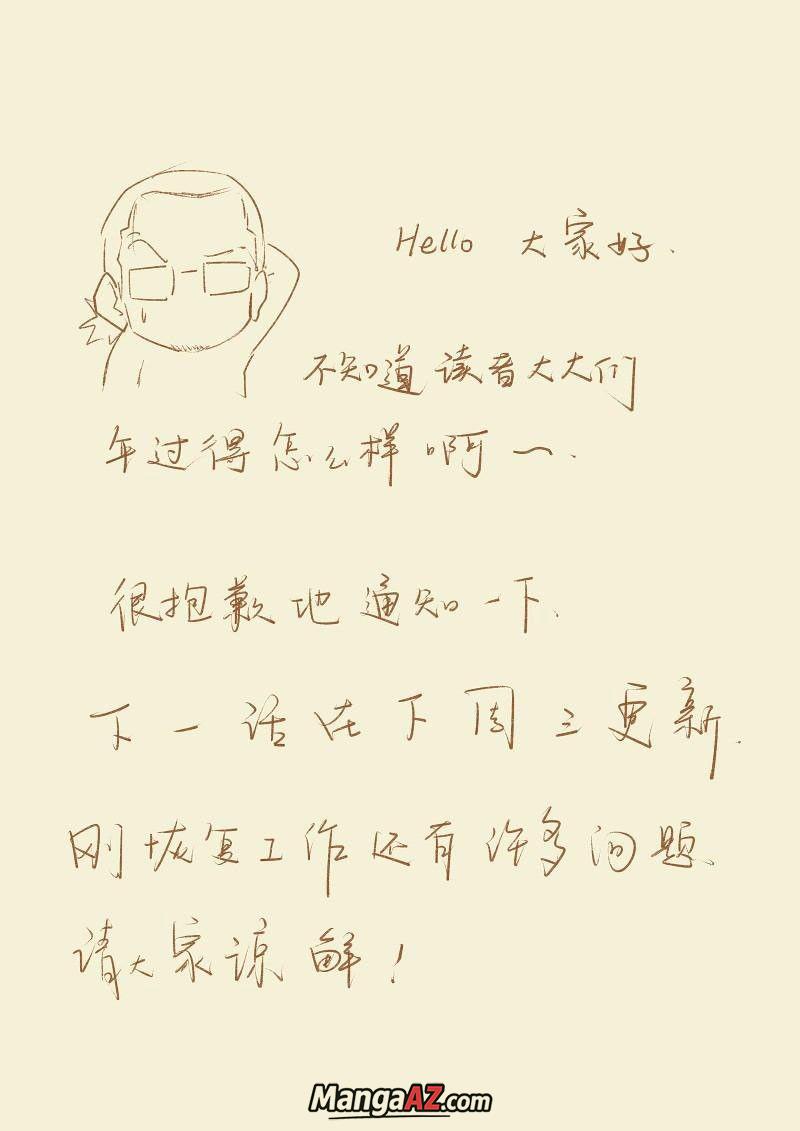 Hello 大家好.
不知道读者大大们
年过得怎么样啊～.
很抱歉地通知一下.
下一话在下周三更新.
刚恢复工作还有许多问题、
请大家谅解！
MangaAZ.com